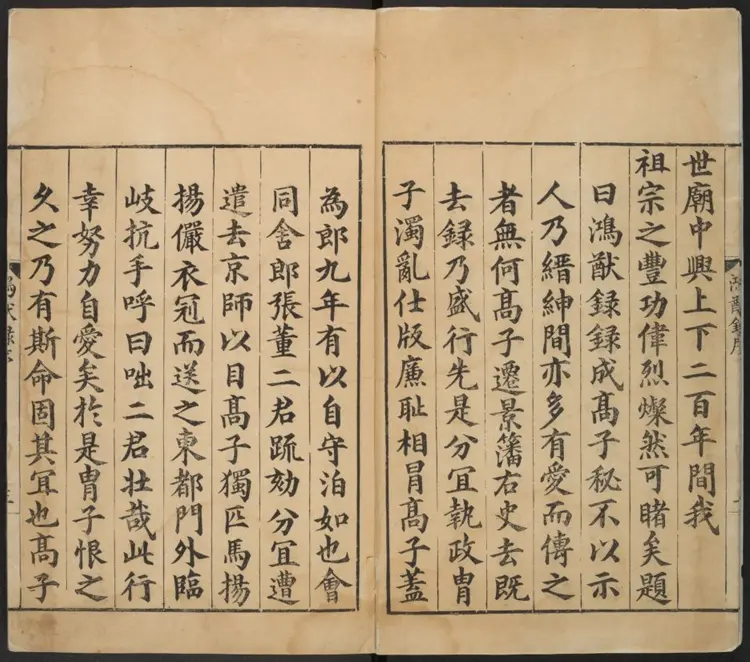 世廟中興上下二百年間我
祖宗之豐功偉烈燦然可睹矣題
曰鴻猷録録成髙子秘不以示
人乃縉紳間亦多有愛而傳之
者無何髙子遷景籓右史去既
去録乃盛行先是分冝執政冑
子濁亂仕版廉恥相冐髙子蓋
為郎九年有以自守泊如也會
同舍郎張董二君䟽劾分冝遭
遣去京師以目髙子獨匹馬揚
揚儼衣冠而送之東都門外臨
岐抗手呼曰咄二君壮哉此行
幸努力自愛矣扵是冑子恨之
久之乃有斯命固其冝也髙子
鴻猷録序